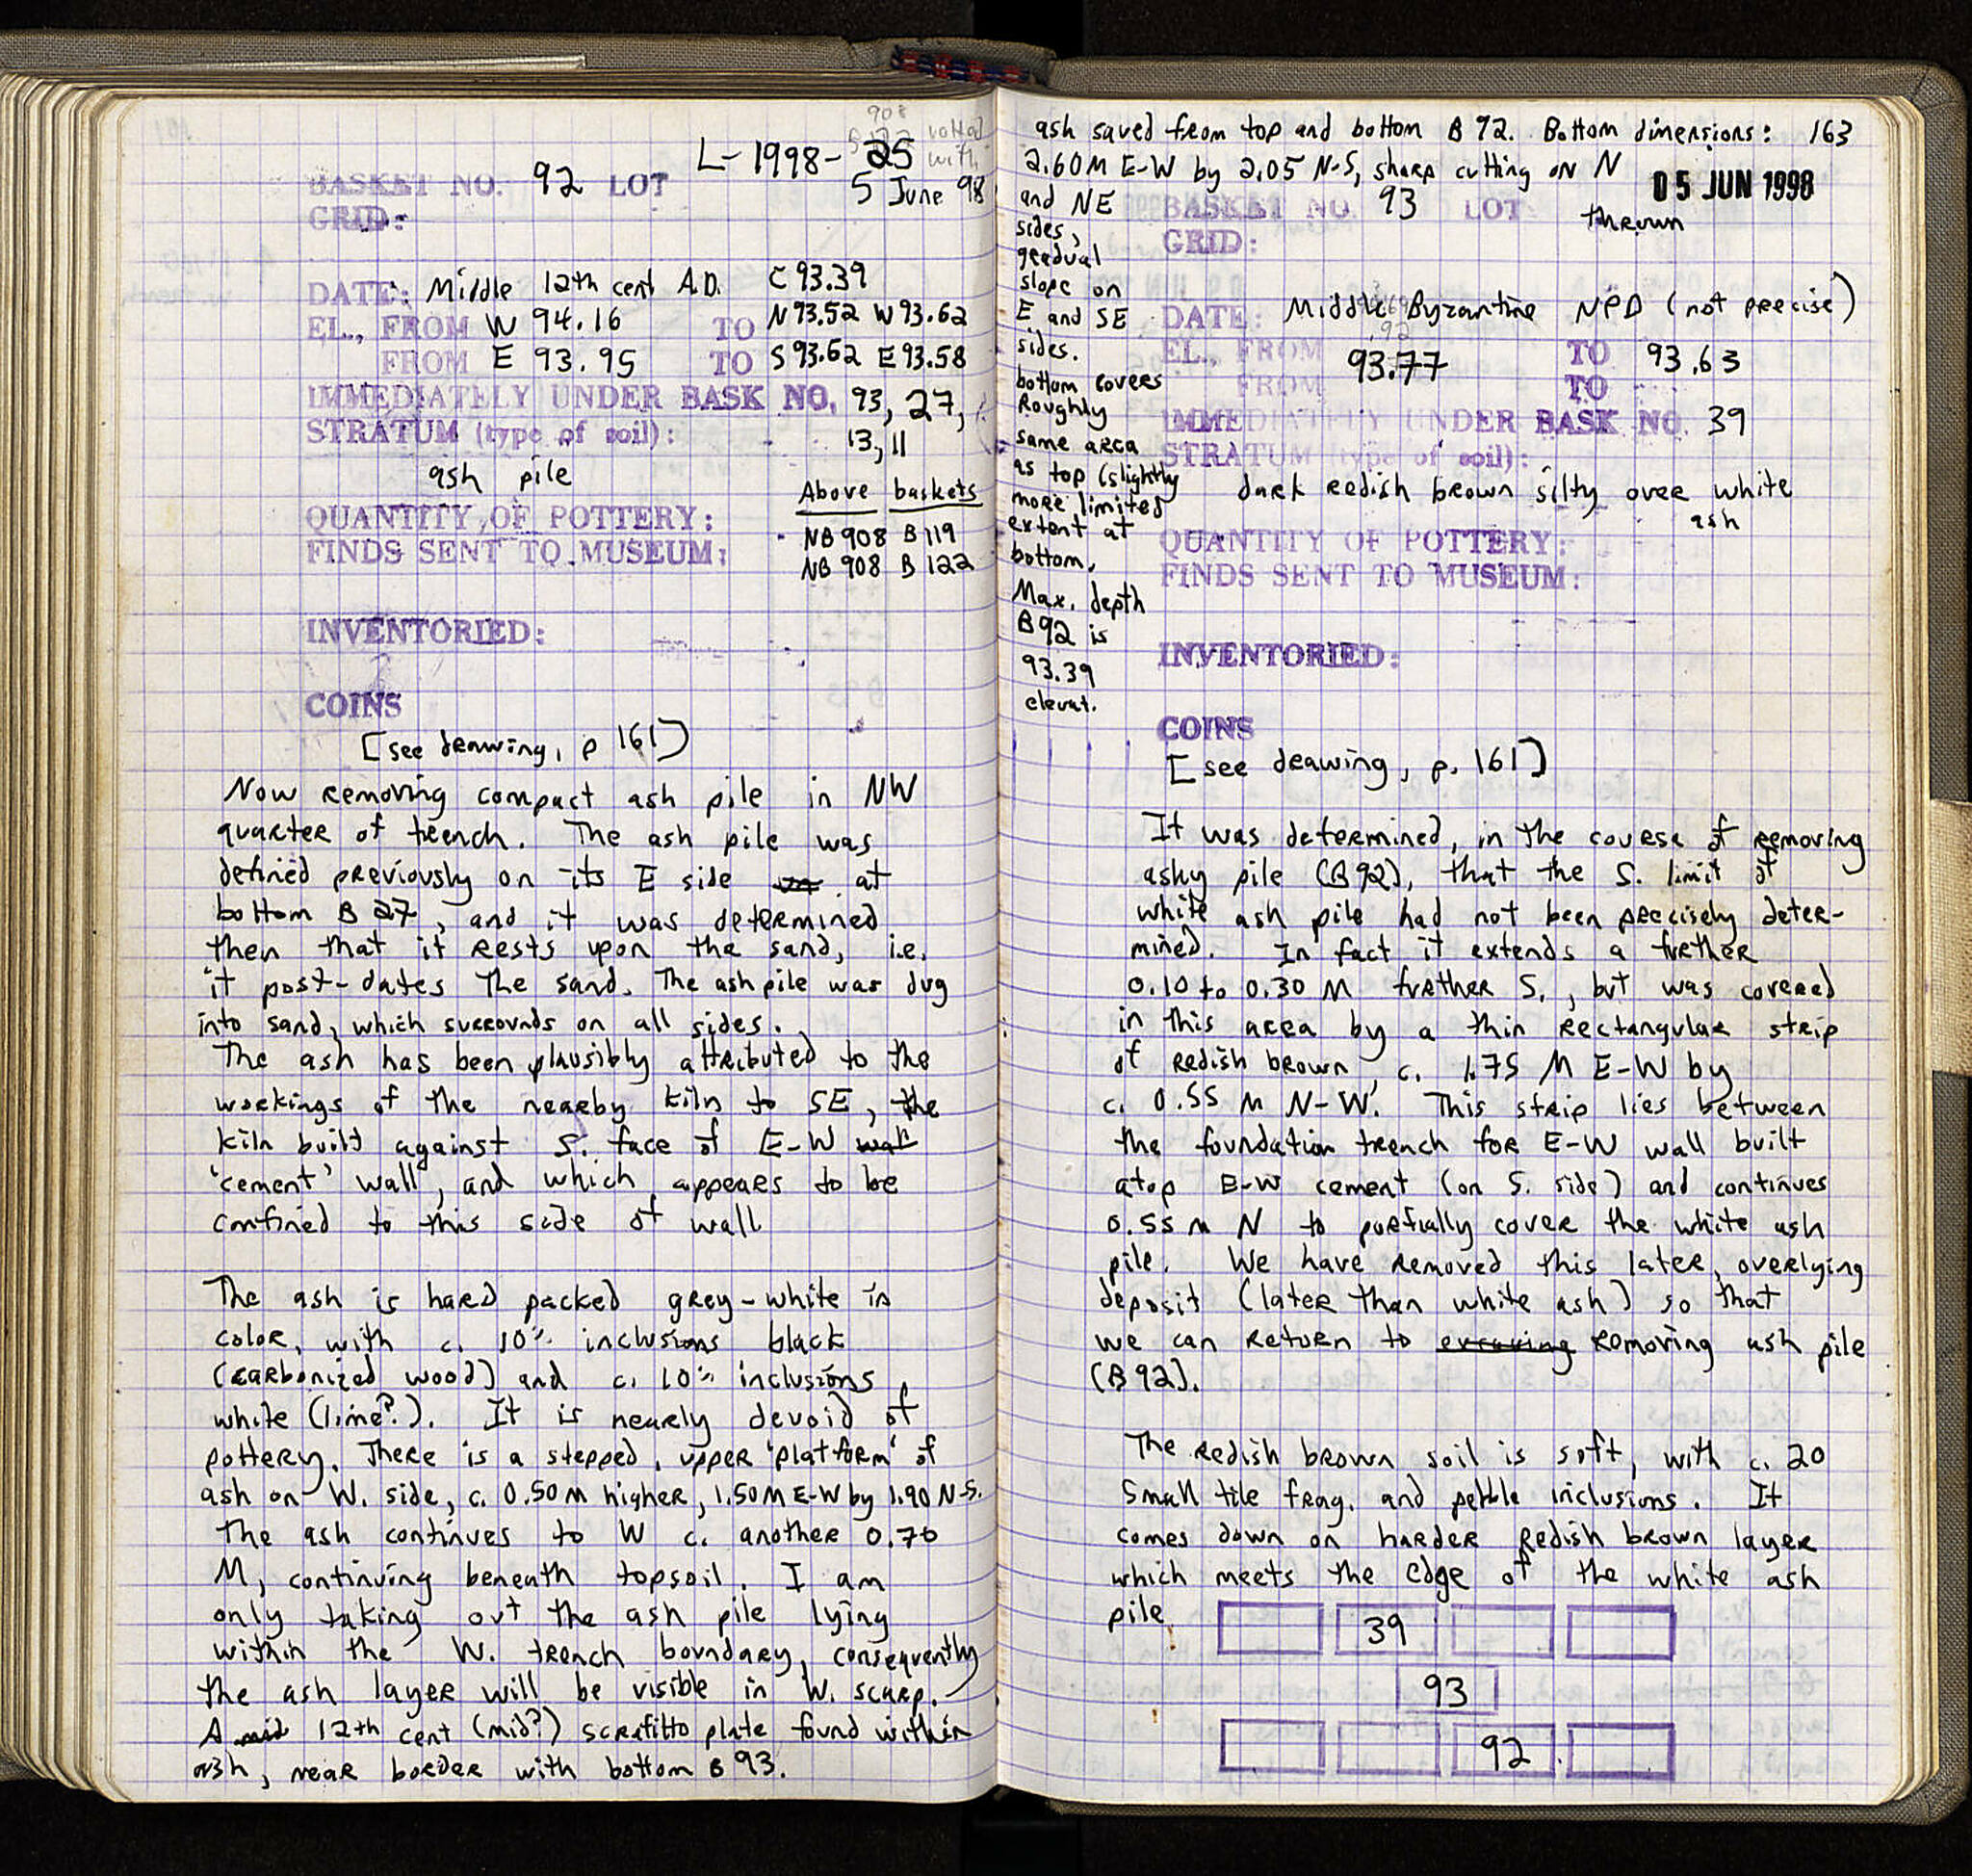 L-1998-25
908
lotted
with
BASKET NO. 92 LOT
5 June 98
GRID:
DATE: Middle 12th cent A.D. C 93.39
EL., FROM W 94.16 TO N 93.52 W 93.62
FROM E 93.95 TO S 93.62 E 93.58
IMMEDIATELY UNDER BASK NO. 93, 27,
STRATUM (type of soil): 13, 11
ash pile
Above baskets
QUANTITY OF POTTERY: NB 908 B 119
FINDS SENT TO MUSEUM: NB 908 B 122
INVENTORIED:
COINS
[see drawing, p 161]
Now removing compact ash pile in NW
quarter of trench. The ash pile was
defined previously on its E side at
bottom B 27, and it was determined
then that it rests upon the sand, i.e.
it post-dates the sand. The ash pile was dug
into sand, which surrounds on all sides.
The ash has been plausibly attributed to the
workings of the nearby kiln to SE, the
kiln built against S. face of E-W wall
'cement' wall, and which appears to be
confined to this side of wall
The ash is hard packed grey-white in
color, with c. 10% inclusions black
(carbonized wood) and c. 10% inclusions
white (lime?). It is nearly devoid of
pottery. There is a stepped, upper 'platform' of
ash on W. side, c. 0.50 M higher, 1.50 M E-W by 1.90 N-S.
The ash continues to W c. another 0.70
M, continuing beneath topsoil. I am
only taking out the ash pile lying
within the W. trench boundary, consequently
the ash layer will be visible in W. scarp.
A mid 12th cent (mid?) scrafitto plate found within
ash, near border with bottom B 93.
ash saved from top and bottom B 92. Bottom dimensions: 163
2.60 M E-W by 2.05 N-S, sharp cutting on N
and NE
sides,
gradual
slope on
E and SE
sides.
bottom covers
Roughly
same area
as top (slightly
more limited
extent at
bottom.
Max. depth
B 92 is
93.39
elevat.
05 JUN 1998
BASKET NO. 93 LOT thrown
GRID:
DATE: Middle Byzantine NPD (not precise)
EL., FROM 93.77 TO 93.63
FROM TO
IMMEDIATELY UNDER BASK NO. 39
STRATUM (type of soil):
dark redish brown silty over white
ash
QUANTITY OF POTTERY:
FINDS SENT TO MUSEUM:
INVENTORIED:
COINS
[see drawing, p. 161]
It was determined, in the course of removing
ashy pile (B 92), that the S. limit of
white ash pile had not been precisely deter-
mined. In fact it extends a further
0.10 to 0.30 M further S., but was covered
in this area by a thin rectangular strip
of redish brown, c. 1.75 M E-W by
c. 0.55 M N-W. This strip lies between
the foundation trench for E-W wall built
atop E-W cement (on S. side) and continues
0.55 M N to partially cover the white ash
pile. We have removed this later, overlying
deposit (later than white ash) so that
we can return to removing ash pile
(B 92).
The redish brown soil is soft, with c. 20
small tile frag. and pebble inclusions. It
comes down on harder redish brown layer
which meets the edge of the white ash
pile.
39
93
92